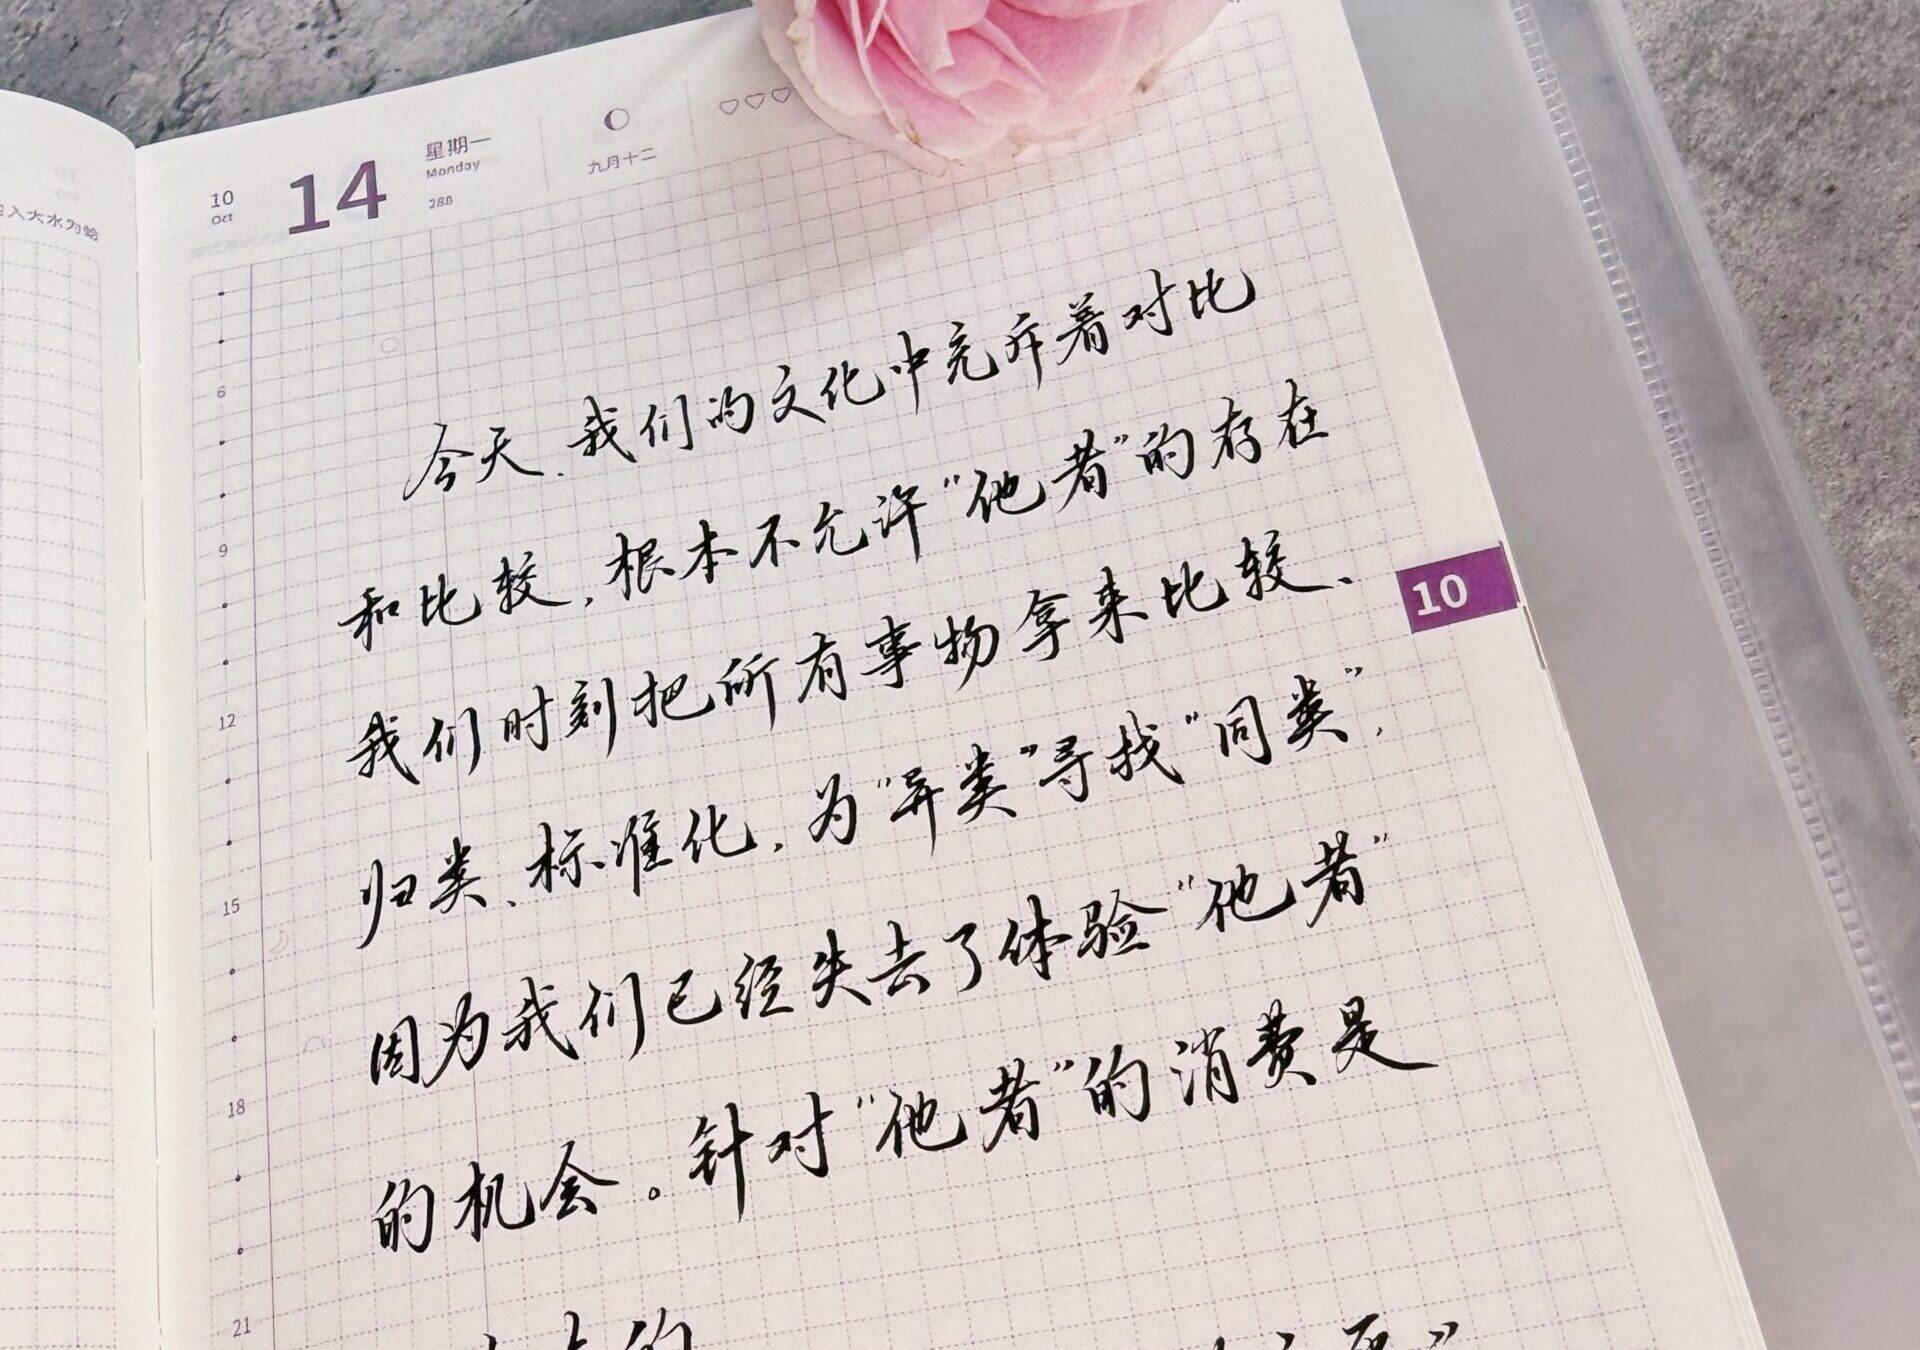 入大水为蛤
10
Oct
14
星期一
Monday
288
九月十二
今天.我们的文化中充斥着对比
和比较,根本不允许“他者”的存在
我们时刻把所有事物拿来比较、
归类、标准化,为“异类”寻找“同类”,
因为我们已经失去了体验“他者”
的机会。针对“他者”的消费是
6
9
12
15
18
21
10